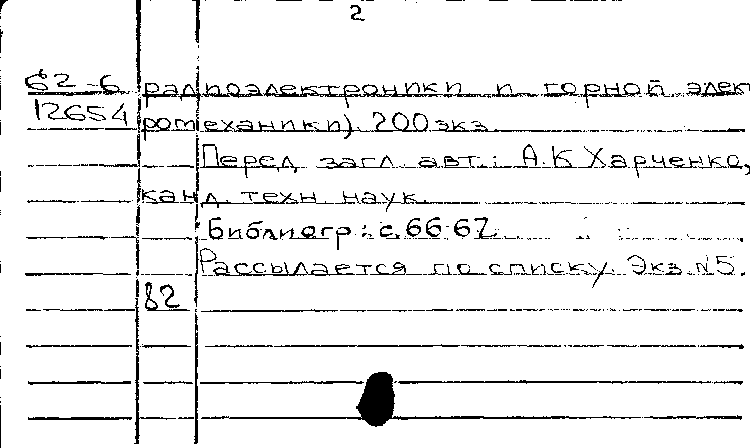 2
62-6 радиоэлектроники и горной элект
12654 ротеханики). 200 экз.
Перед загл. авт.: А.К Харченко,
канд. техн. наук.
Библиогр.: с.66-67.
Рассылается по списку. Экз. №5.
82